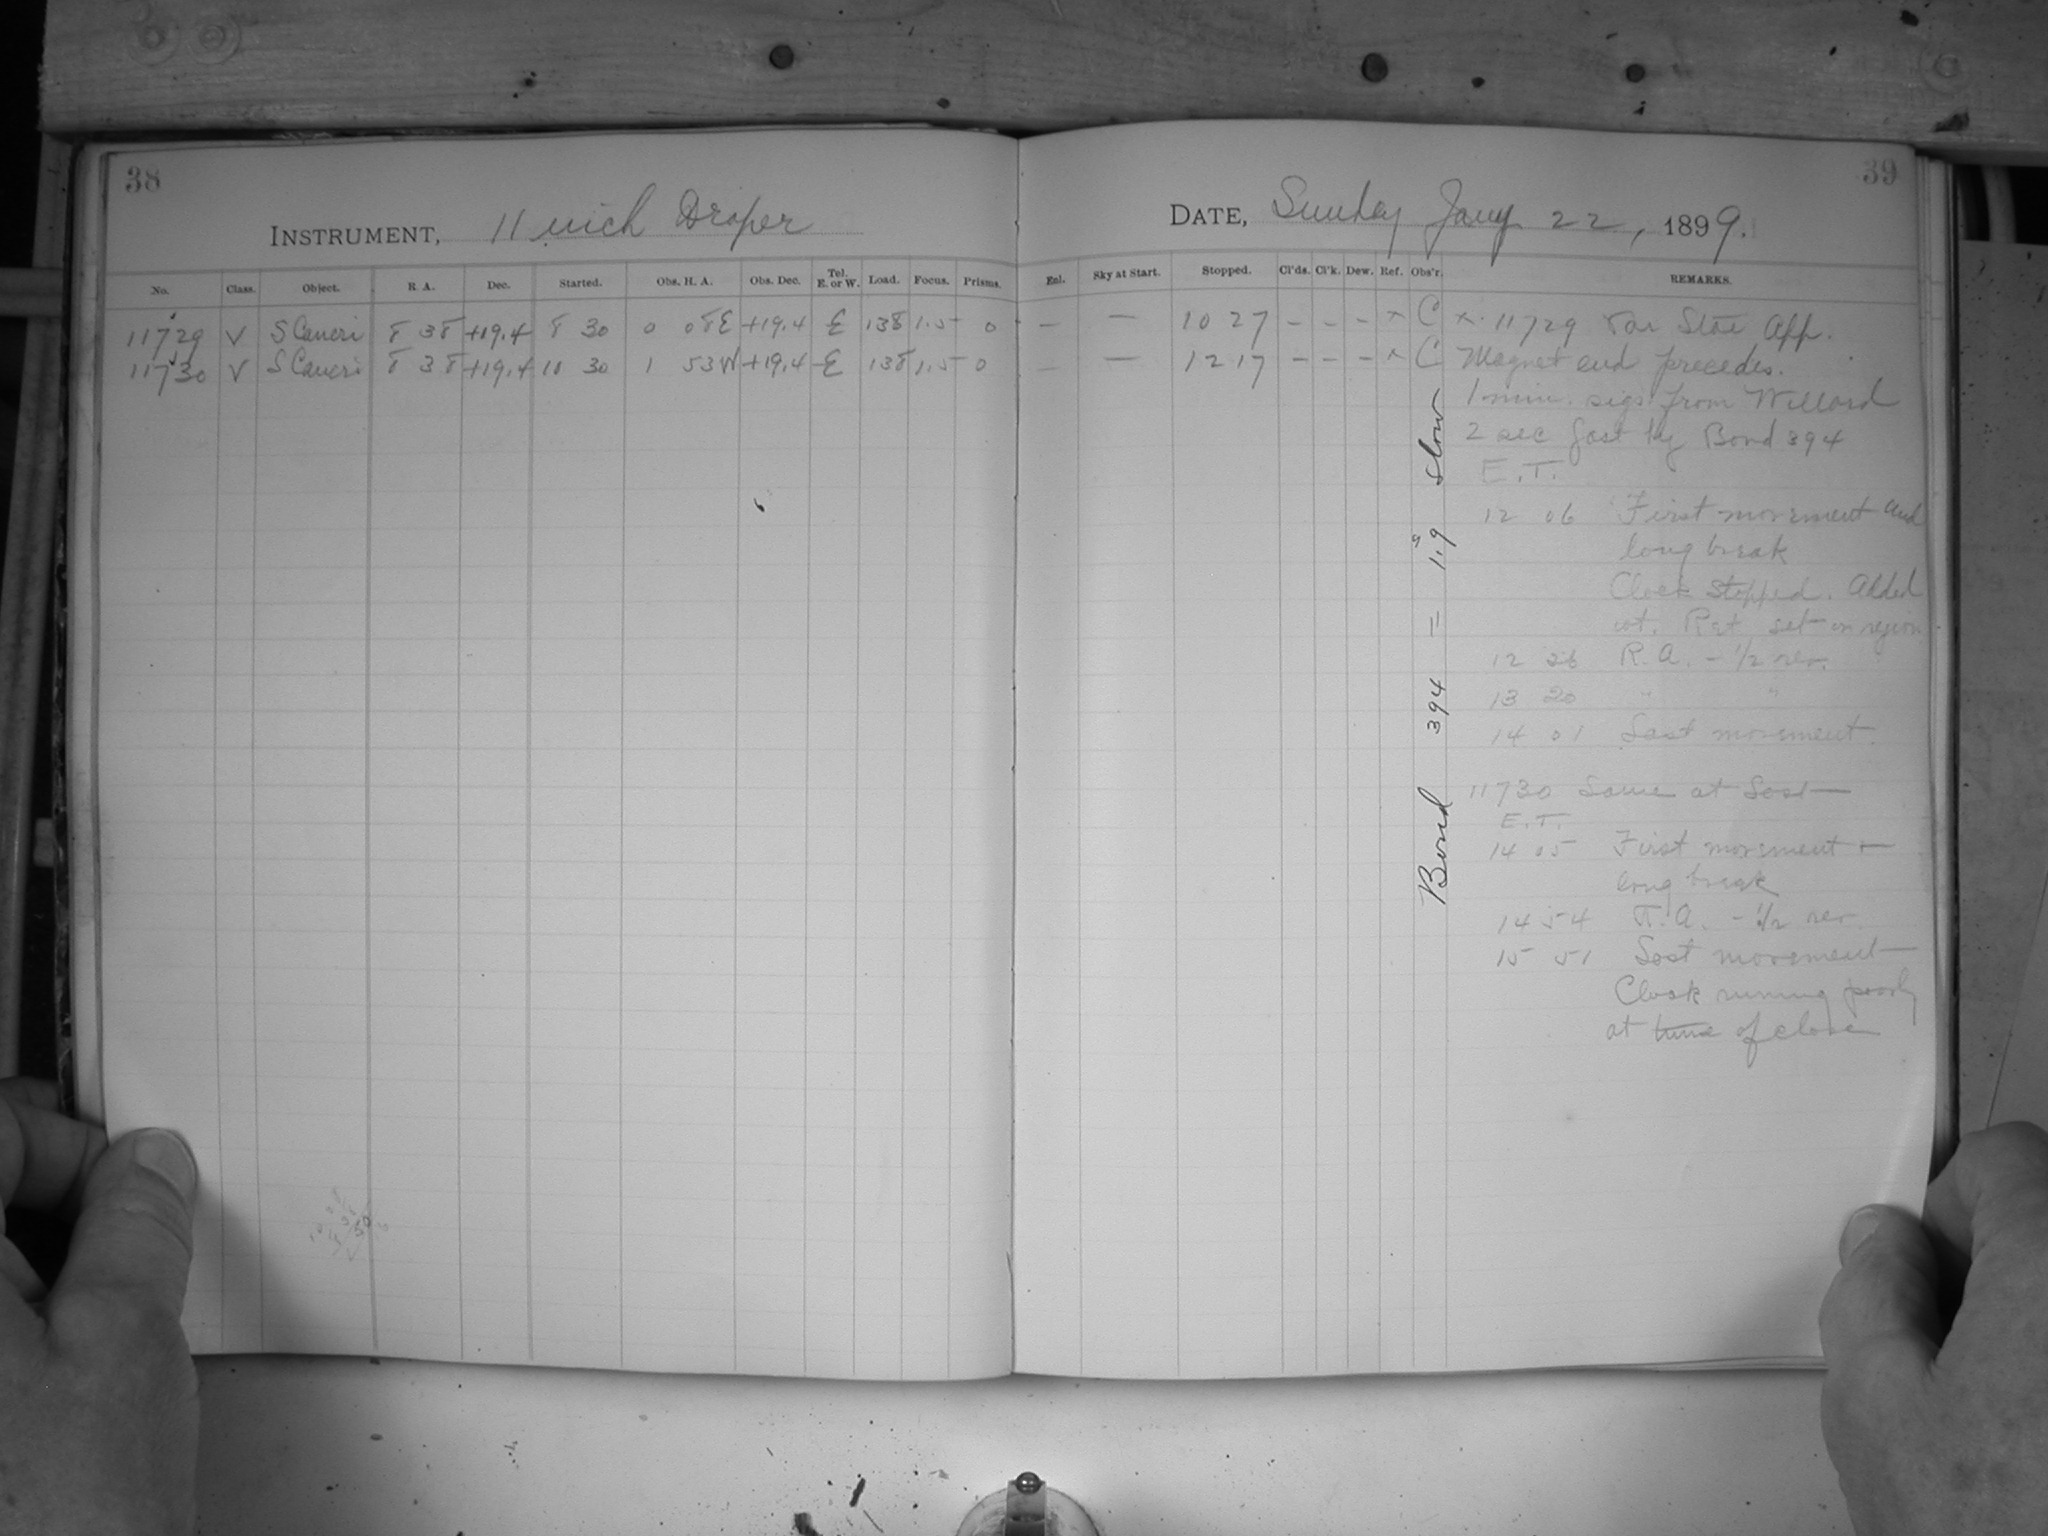 38
INSTRUMENT, 11 inch Draper
No. Class. Object. R. A. Dec. Started. Obs. H. A. Obs. Dec. Tel. E. or W. Load. Focus. Prisms.
11729 V S Cancri 8 38 +19.4 8 30 0 08E +19.4 E 138 1.5 0
11730 V S Cancri 8 38 +19.4 10 30 1 53W +19.4 E 138 1.5 0
39
DATE, Sunday Jany 22, 1899.
Enl. Sky at Start. Stopped. Cl'ds. Cl'k. Dew. Ref. Obs'r. REMARKS.
— — 10 27 – – – × C × 11729 Var Star App.
— — 12 17 – – – × C Magnet end precedes.
1 min. sigs from Willard
2 sec fast by Bond 394
E.T.
12 06 First movement and
long break
Clock stopped. Added
wt. Ret. set on region
12 26 R.A. – 1/2 rev.
13 20 " "
14 01 Last movement.
11730 Same as last
E.T.
14 05 First movement +
long break
14 54 R.A. – 1/2 rev
15 51 Last movement
Clock running poorly
at time of close
Bond 394 = 1.9s slow